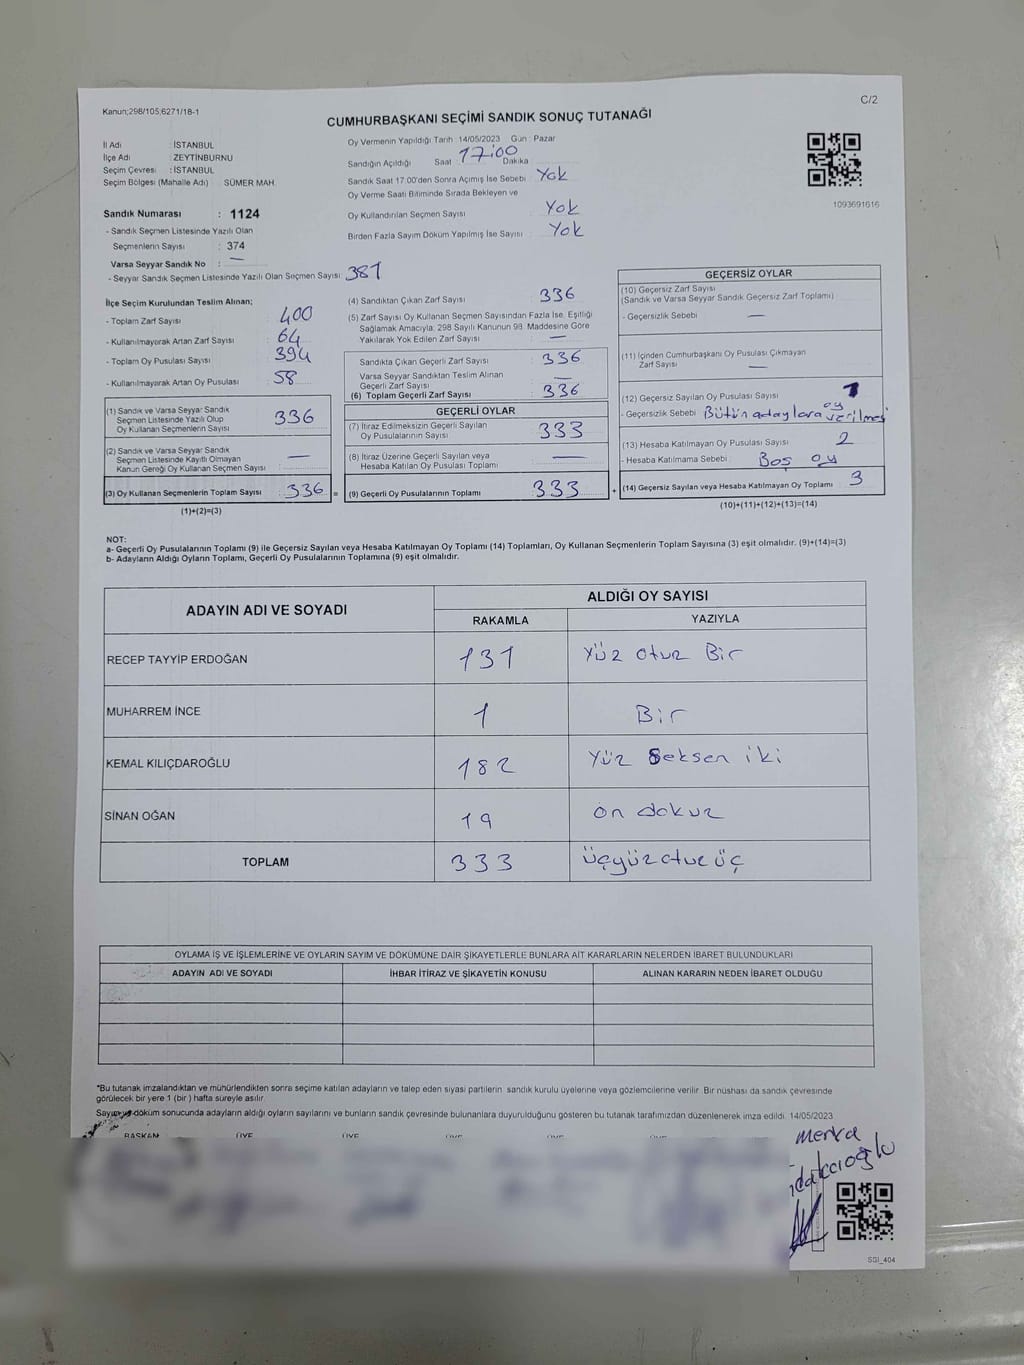 Kanun;298/105;6271/18-1
C/2
CUMHURBAŞKANI SEÇİMİ SANDIK SONUÇ TUTANAĞI
İl Adı : İSTANBUL
İlçe Adı : ZEYTİNBURNU
Seçim Çevresi : İSTANBUL
Seçim Bölgesi (Mahalle Adı) SÜMER MAH.
Sandık Numarası : 1124
- Sandık Seçmen Listesinde Yazılı Olan
Seçmenlerin Sayısı : 374
Varsa Seyyar Sandık No : —
- Seyyar Sandık Seçmen Listesinde Yazılı Olan Seçmen Sayısı 381
Oy Vermenin Yapıldığı Tarih :14/05/2023 Gün : Pazar
Sandığın Açıldığı Saat : 17:00 Dakika
Sandık Saat 17.00'den Sonra Açımış İse Sebebi : Yok
Oy Verme Saati Bitiminde Sırada Bekleyen ve
Oy Kullandırılan Seçmen Sayısı Yok
Birden Fazla Sayım Döküm Yapılmış İse Sayısı : Yok
1093691616
İlçe Seçim Kurulundan Teslim Alınan;
- Toplam Zarf Sayısı : 400
- Kullanılmayarak Artan Zarf Sayısı : 64
- Toplam Oy Pusulası Sayısı : 394
- Kullanılmayarak Artan Oy Pusulası : 58
(1) Sandık ve Varsa Seyyar Sandık
Seçmen Listesinde Yazılı Olup
Oy Kullanan Seçmenlerin Sayısı : 336
(2) Sandık ve Varsa Seyyar Sandık
Seçmen Listesinde Kayıtlı Olmayan
Kanun Gereği Oy Kullanan Seçmen Sayısı : —
(3) Oy Kullanan Seçmenlerin Toplam Sayısı : 336 =
(1)+(2)=(3)
(4) Sandıktan Çıkan Zarf Sayısı : 336
(5) Zarf Sayısı Oy Kullanan Seçmen Sayısından Fazla İse, Eşitliği
Sağlamak Amacıyla; 298 Sayılı Kanunun 98. Maddesine Göre
Yakılarak Yok Edilen Zarf Sayısı : —
Sandıkta Çıkan Geçerli Zarf Sayısı : 336
Varsa Seyyar Sandıktan Teslim Alınan
Geçerli Zarf Sayısı : —
(6) Toplam Geçerli Zarf Sayısı : 336
GEÇERLİ OYLAR
(7) İtiraz Edilmeksizin Geçerli Sayılan
Oy Pusulalarının Sayısı : 333
(8) İtiraz Üzerine Geçerli Sayılan veya
Hesaba Katılan Oy Pusulası Toplamı : —
(9) Geçerli Oy Pusulalarının Toplamı : 333 +
GEÇERSİZ OYLAR
(10) Geçersiz Zarf Sayısı
(Sandık ve Varsa Seyyar Sandık Geçersiz Zarf Toplamı) :
- Geçersizlik Sebebi : —
(11) İçinden Cumhurbaşkanı Oy Pusulası Çıkmayan
Zarf Sayısı : —
(12) Geçersiz Sayılan Oy Pusulası Sayısı : 1
- Geçersizlik Sebebi : Bütün adaylara oy verilmesi
(13) Hesaba Katılmayan Oy Pusulası Sayısı : 2
- Hesaba Katılmama Sebebi : Boş oy
(14) Geçersiz Sayılan veya Hesaba Katılmayan Oy Toplamı : 3
(10)+(11)+(12)+(13)=(14)
NOT:
a- Geçerli Oy Pusulalarının Toplamı (9) ile Geçersiz Sayılan veya Hesaba Katılmayan Oy Toplamı (14) Toplamları, Oy Kullanan Seçmenlerin Toplam Sayısına (3) eşit olmalıdır. (9)+(14)=(3)
b- Adayların Aldığı Oyların Toplamı, Geçerli Oy Pusulalarının Toplamına (9) eşit olmalıdır.
ADAYIN ADI VE SOYADI
ALDIĞI OY SAYISI
RAKAMLA
YAZIYLA
RECEP TAYYİP ERDOĞAN 131 Yüz otuz Bir
MUHARREM İNCE 1 Bir
KEMAL KILIÇDAROĞLU 182 Yüz Seksen iki
SİNAN OĞAN 19 on dokuz
TOPLAM 333 üçyüzotuz üç
OYLAMA İŞ VE İŞLEMLERİNE VE OYLARIN SAYIM VE DÖKÜMÜNE DAİR ŞİKAYETLERLE BUNLARA AİT KARARLARIN NELERDEN İBARET BULUNDUKLARI
ADAYIN ADI VE SOYADI
İHBAR İTİRAZ VE ŞİKAYETİN KONUSU
ALINAN KARARIN NEDEN İBARET OLDUĞU
*Bu tutanak imzalandıktan ve mühürlendikten sonra seçime katılan adayların ve talep eden siyasi partilerin sandık kurulu üyelerine veya gözlemcilerine verilir. Bir nüshası da sandık çevresinde
görülecek bir yere 1 (bir) hafta süreyle asılır.
Sayım ve döküm sonucunda adayların aldığı oyların sayılarını ve bunların sandık çevresinde bulunanlara duyurulduğunu gösteren bu tutanak tarafımızdan düzenlenerek imza edildi. 14/05/2023
BAŞKAN ÜYE ÜYE ÜYE ÜYE ÜYE
SGI_404